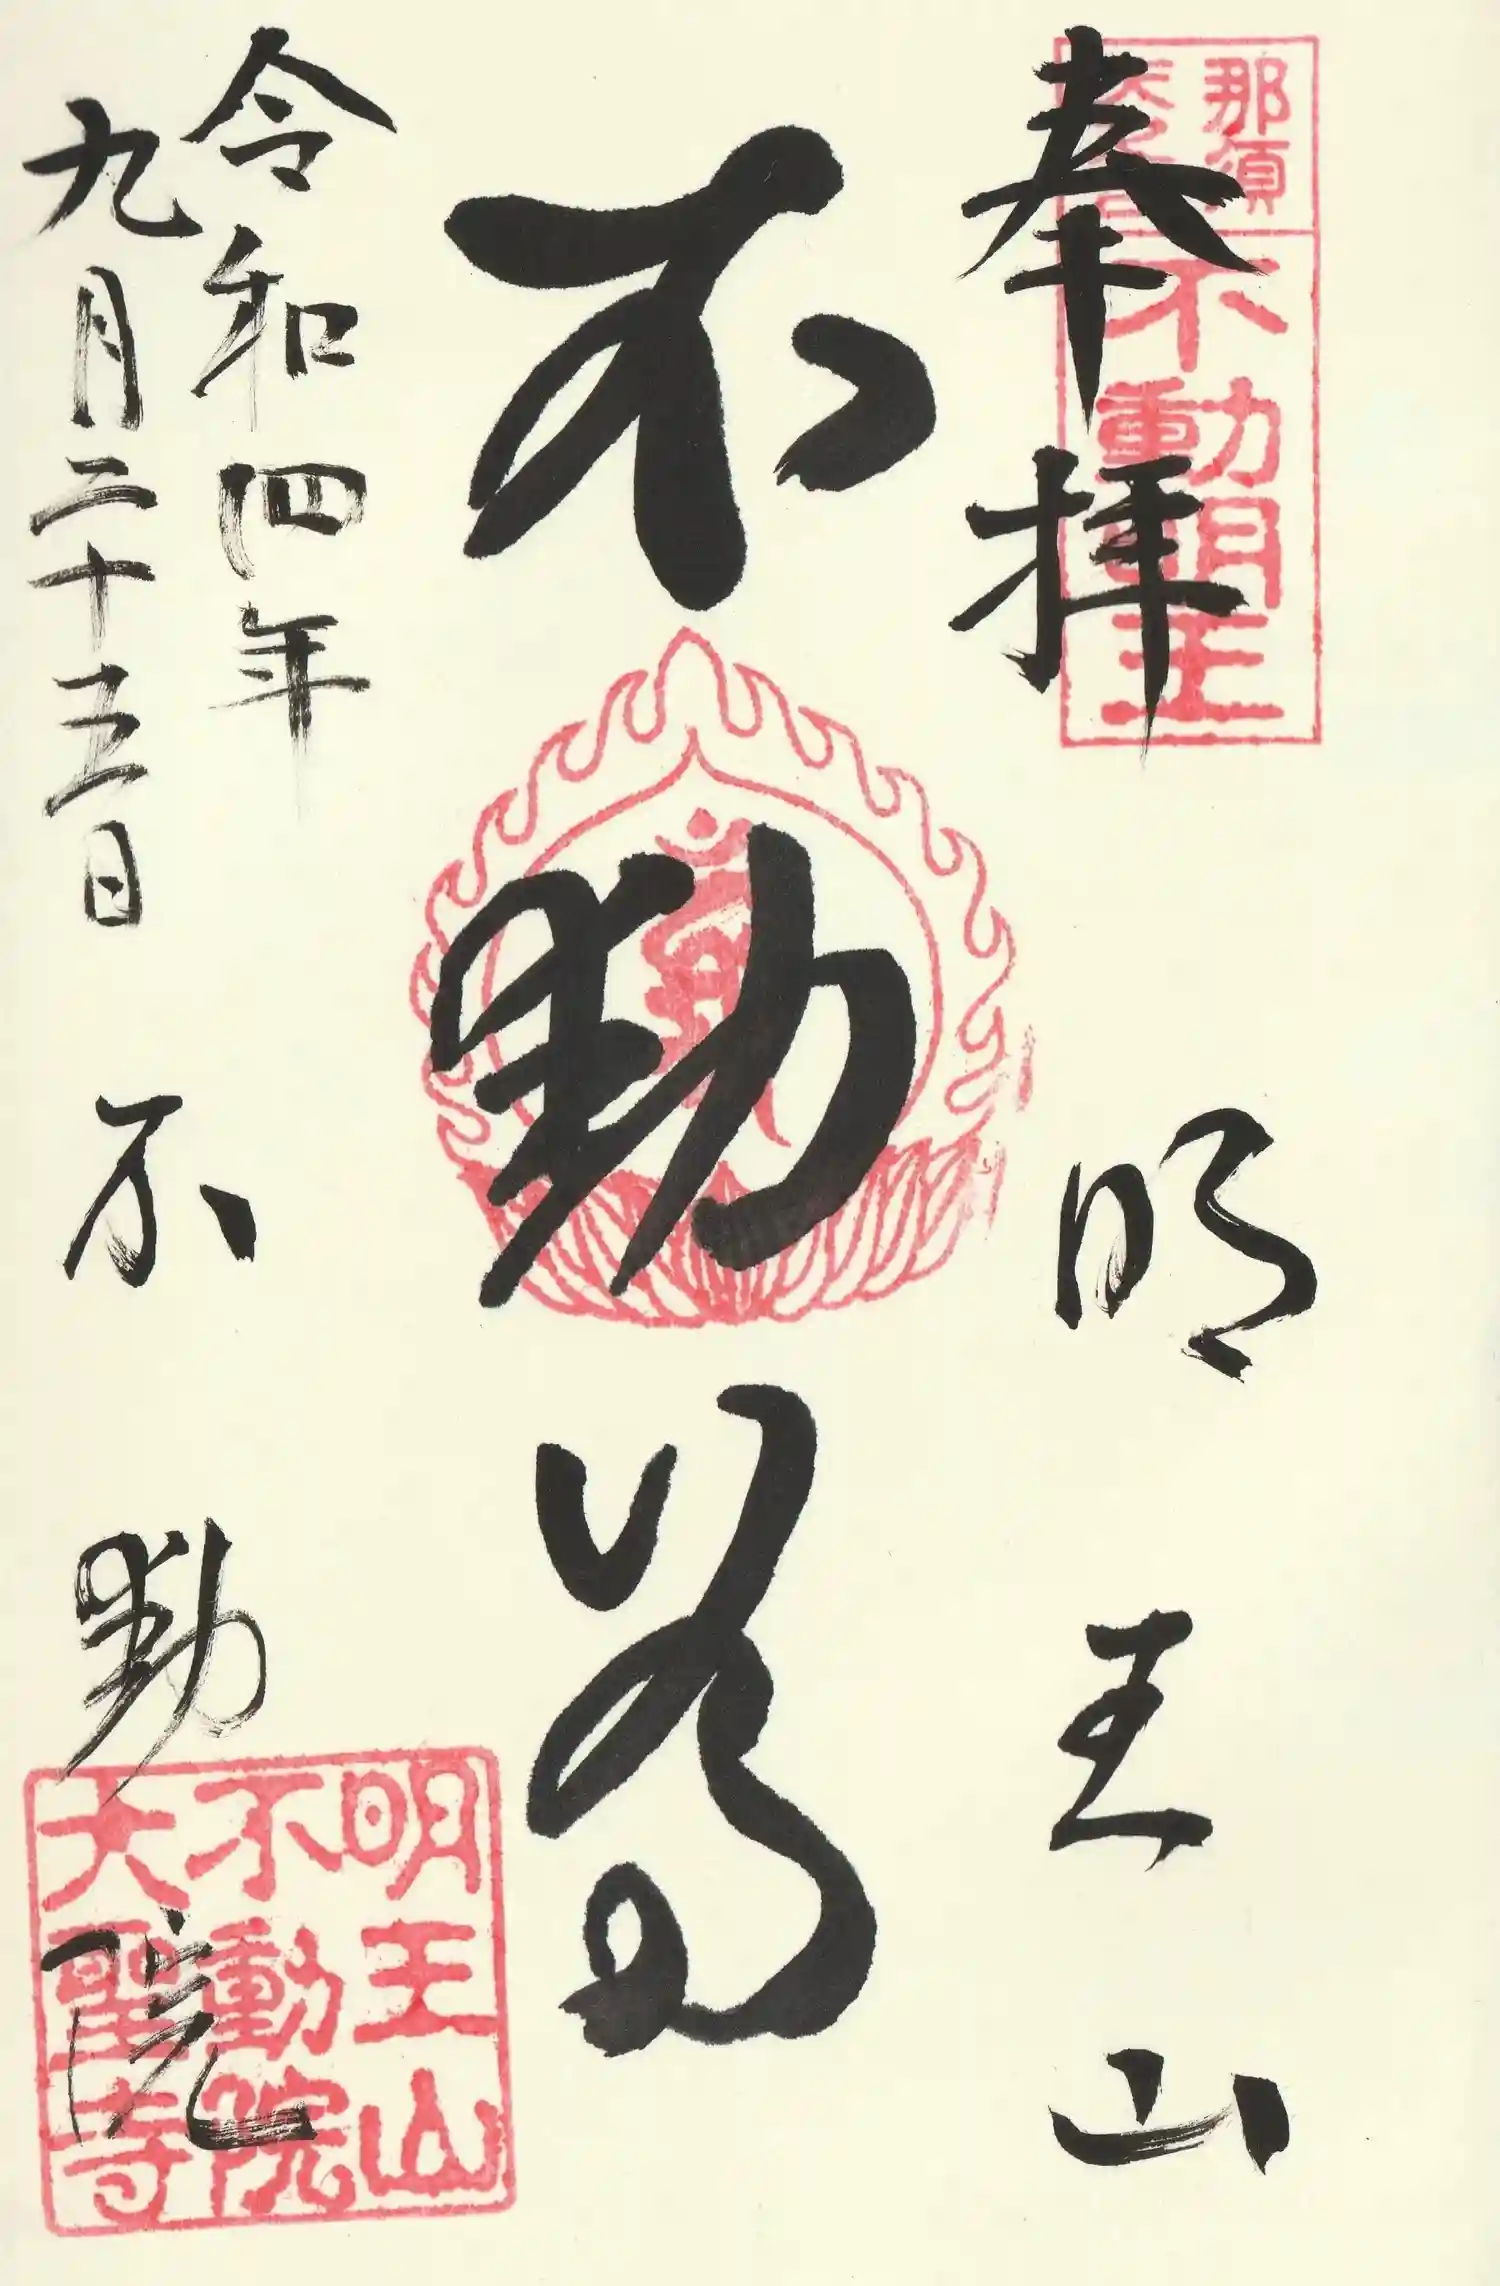 奉拝
那須
不動明王
明王山
不動尊
令和四年
九月二十五日
不動院
明王山
不動院
大聖寺